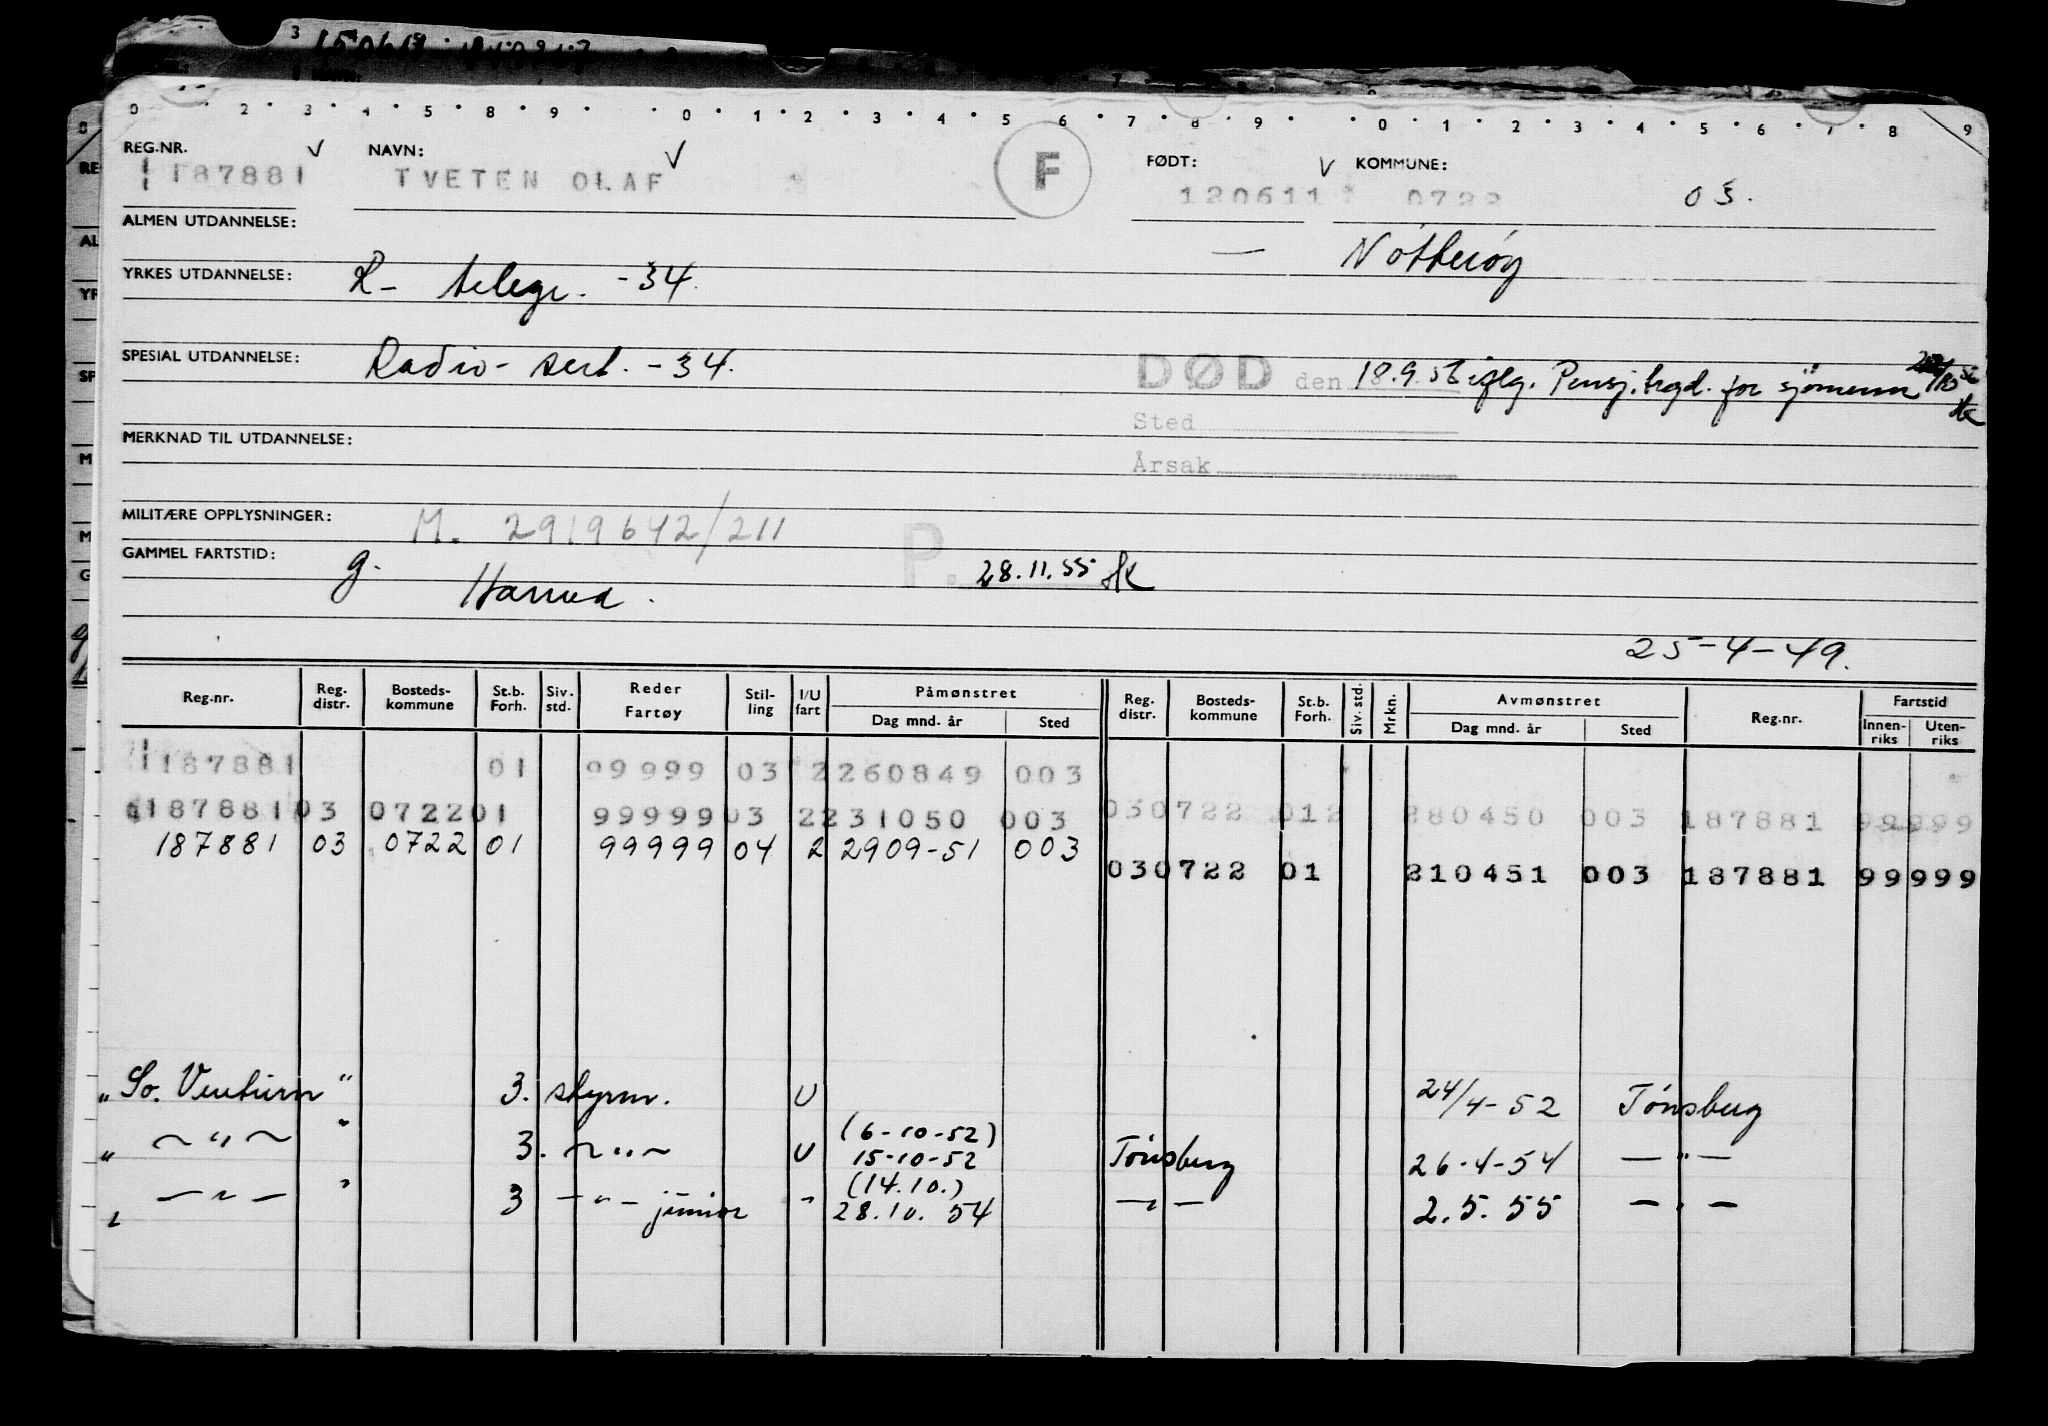 0 2 3 4 5 8 9 0 1 2 3 4 5 6 7 8 9 0 1 2 3 4 5 6 7 8 9
REG.NR. NAVN: F FØDT: KOMMUNE:
187881 TVETEN OLAF 120611 0722 03.
ALMEN UTDANNELSE:
— Nøtterøy
YRKES UTDANNELSE: R- telegr. -34.
SPESIAL UTDANNELSE: Radio- sert. -34. DØD den 18.9.56 iflg. Pensj.trgd. for sjömenn
Sted
MERKNAD TIL UTDANNELSE:
Årsak
MILITÆRE OPPLYSNINGER: M. 2919642/211
GAMMEL FARTSTID: g. P. 28.11.55 HK
25-4-49.
Reg.nr. Reg. distr. Bosteds- kommune St.b. Forh. Siv. std. Reder Fartøy Stil- ling I/U fart Påmønstret Dag mnd. år Sted Reg. distr. Bosteds- kommune St.b. Forh. Siv. std. Mrkn. Avmønstret Dag mnd. år Sted Reg.nr. Fartstid Innen- riks Uten- riks
187881 01 99999 03 2 260849 003
187881 03 0722 01 99999 03 2 231050 003 03 0722 01 2 280450 003 187881 99999
187881 03 0722 01 99999 04 2 2909-51 003
03 0722 01 210451 003 187881 99999
"So. Venturn" 3. styrm. U 24/4-52 Tønsberg
" ~ " ~ " 3. ~ " ~ U (6-10-52) 15-10-52 Tönsberg 26-4-54 — " —
— " — " 3 — " — junior " (14.10.) 28.10. 54 — " — 2.5.55 — " —